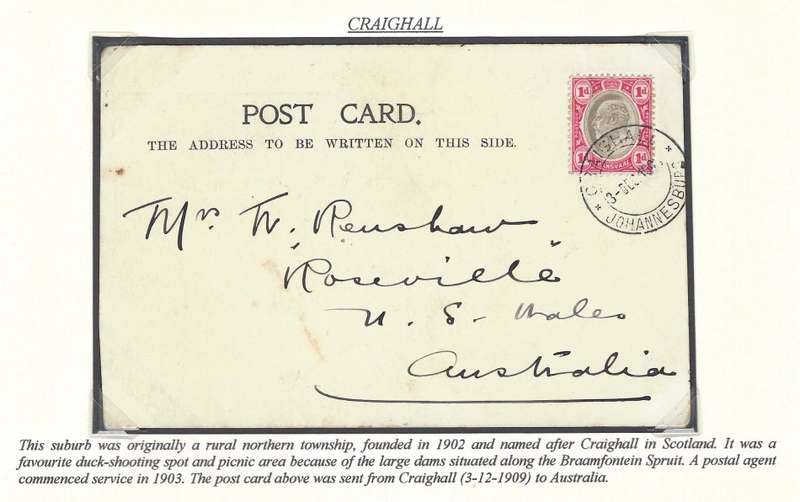 CRAIGHALL
POST CARD.
THE ADDRESS TO BE WRITTEN ON THIS SIDE.
1d 1d
1d 1d
CRAIGHALL
3-DEC
* JOHANNESBURG *
Mrs W. Renshaw
"Roseville"
N. S. Wales
Australia
This suburb was originally a rural northern township, founded in 1902 and named after Craighall in Scotland. It was a
favourite duck-shooting spot and picnic area because of the large dams situated along the Braamfontein Spruit. A postal agent
commenced service in 1903. The post card above was sent from Craighall (3-12-1909) to Australia.